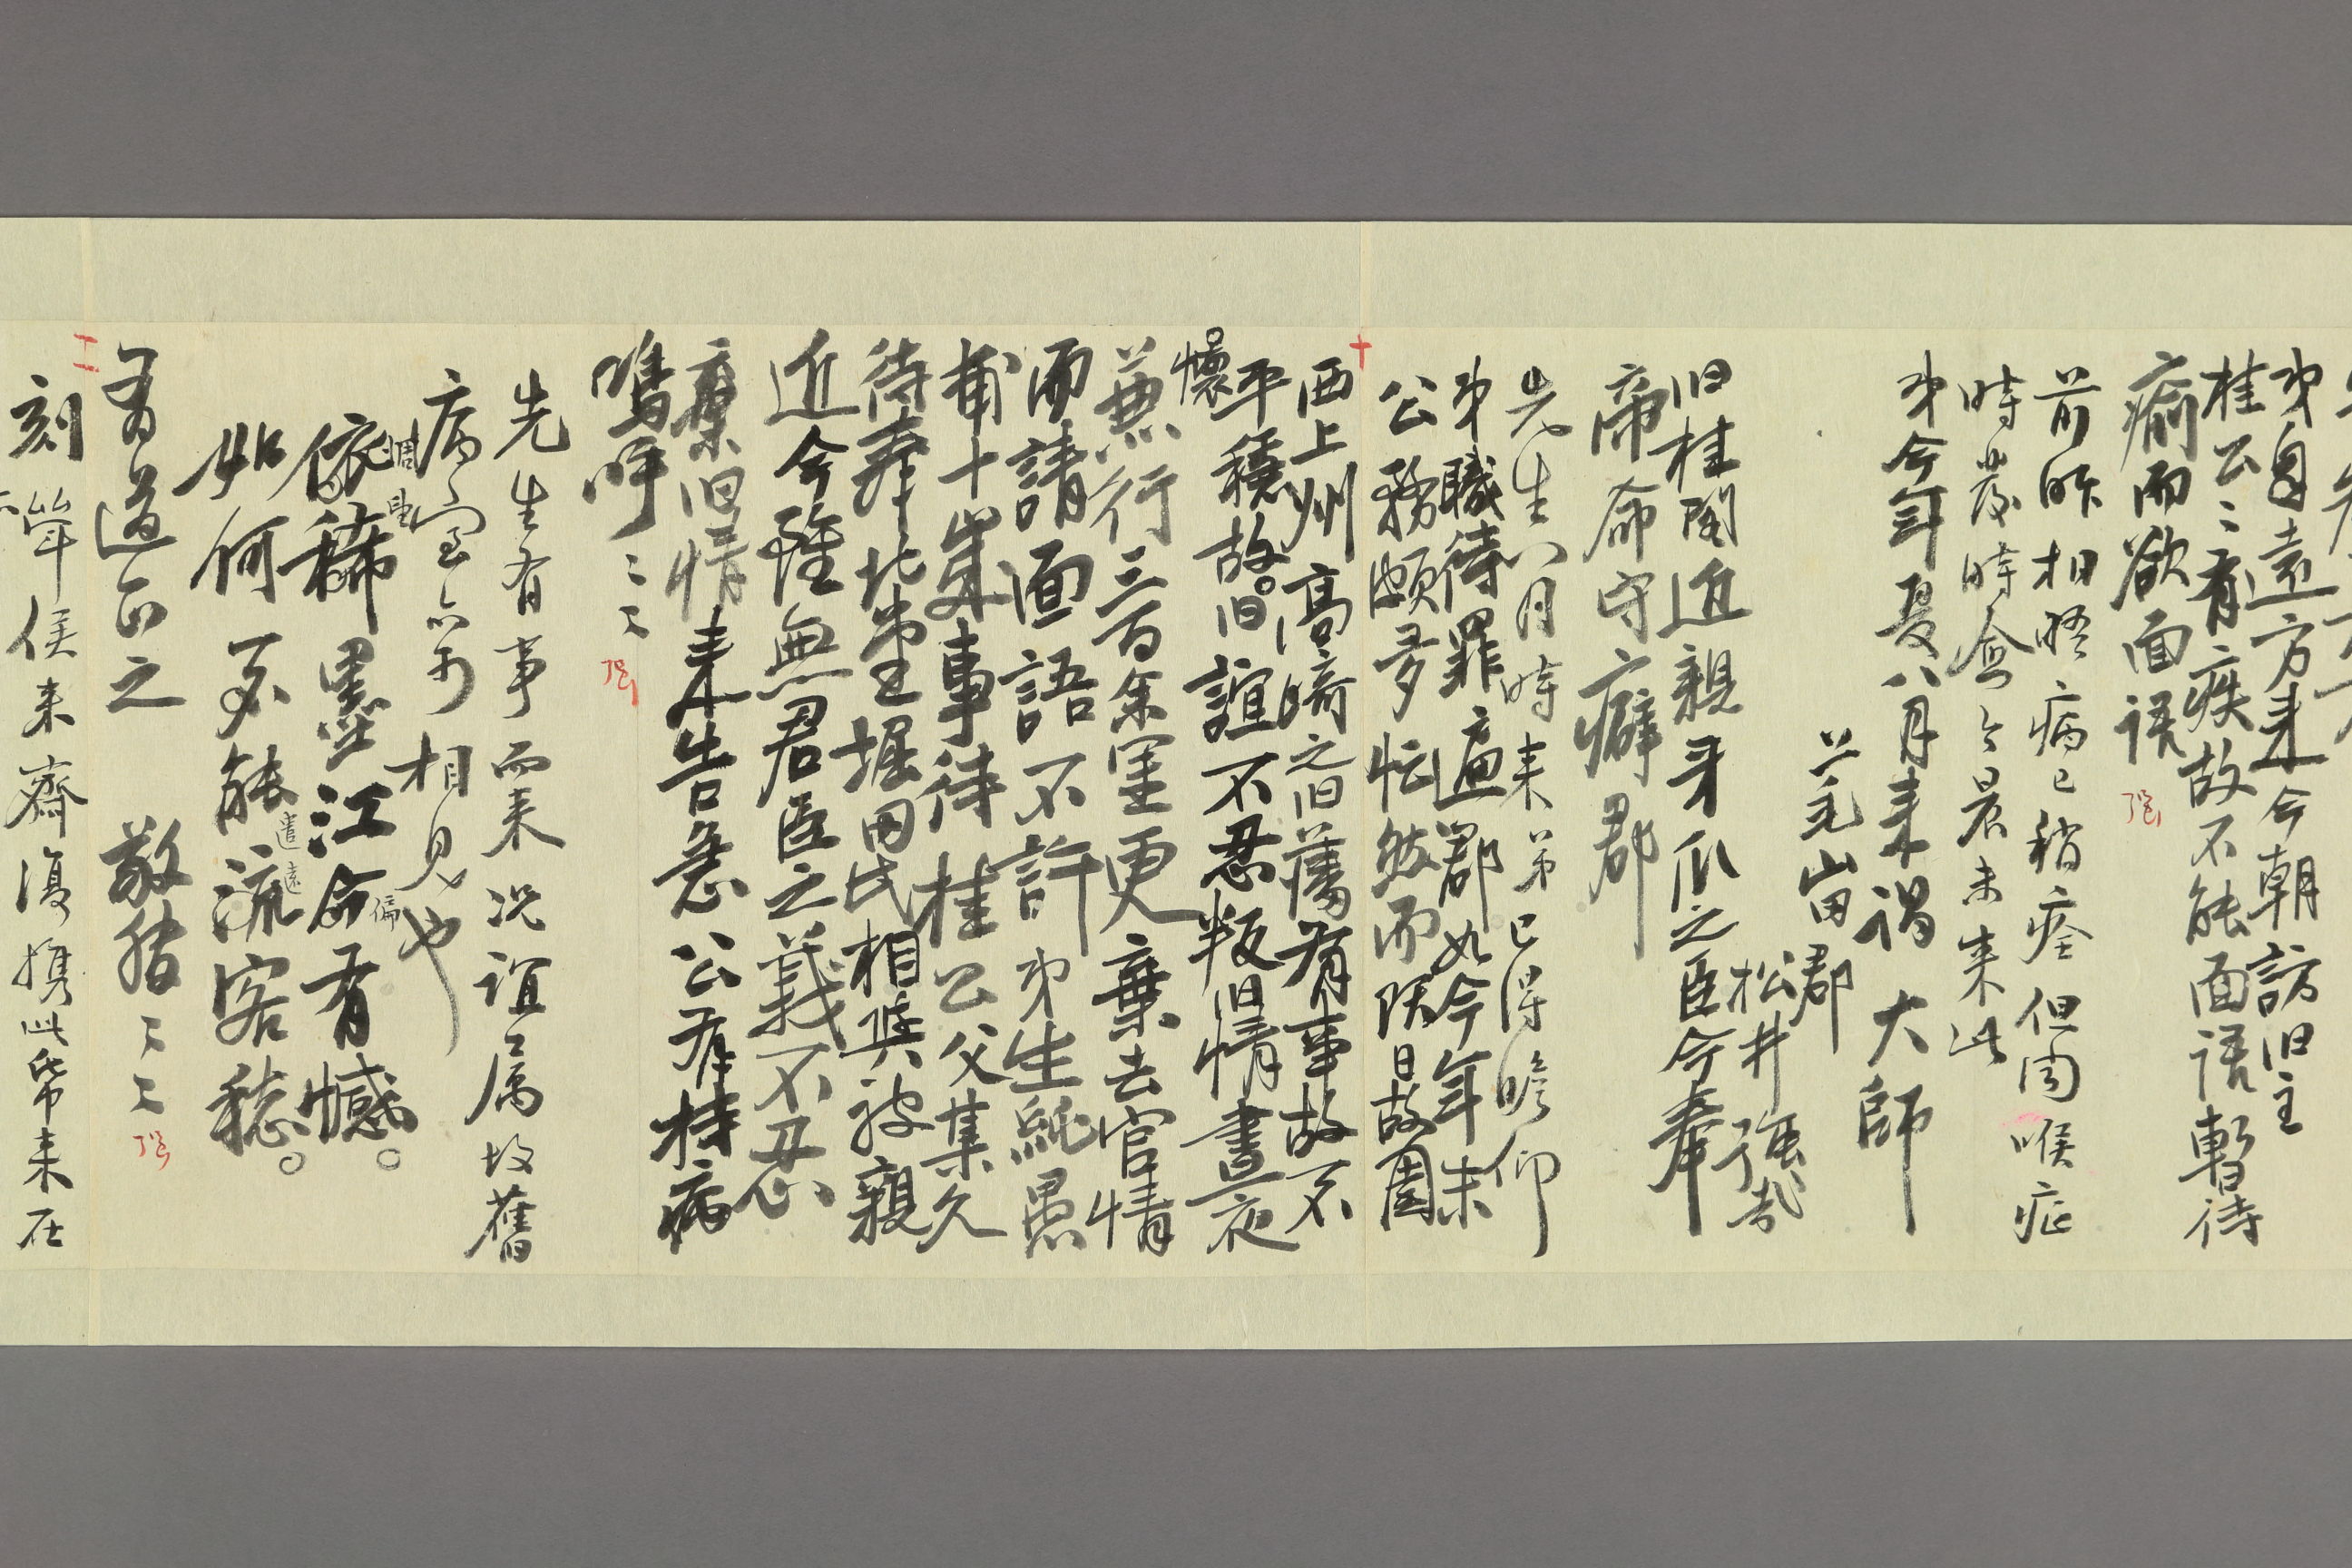 弟自遠方来今朝訪旧主
桂公〻有疾故不能面語暫待
癒而欲面語
前昨相晤病已稍痊但因喉症
時發時愈今晨未来此
弟今年夏八月来謁大師
上毛 郡
松井强哉
旧桂閣近親牙爪之臣今奉
帝命守癖郡
先生八月時来弟已得瞻仰
弟職待罪 郡如今年未
公務頗多忙然而 日故園
西上州高崎之旧藩有事故不
平穏故旧誼不忍叛旧情晝夜
懷
兼行三百余里更棄去官情
而請面語不許弟生純愚
甫十歳事待桂公父某久
待 北堂堀田氏相共被親
近今雖無君臣之義不忍
棄旧情来告急公有持病
嗚呼〻〻
先生有事而来况誼属故舊
病室亦可相見也
依稀墨江命有憾
如何不能流客愁
遣遠
偏
有道正之 敬
十
二
刻 侯来齋復携此帋来在